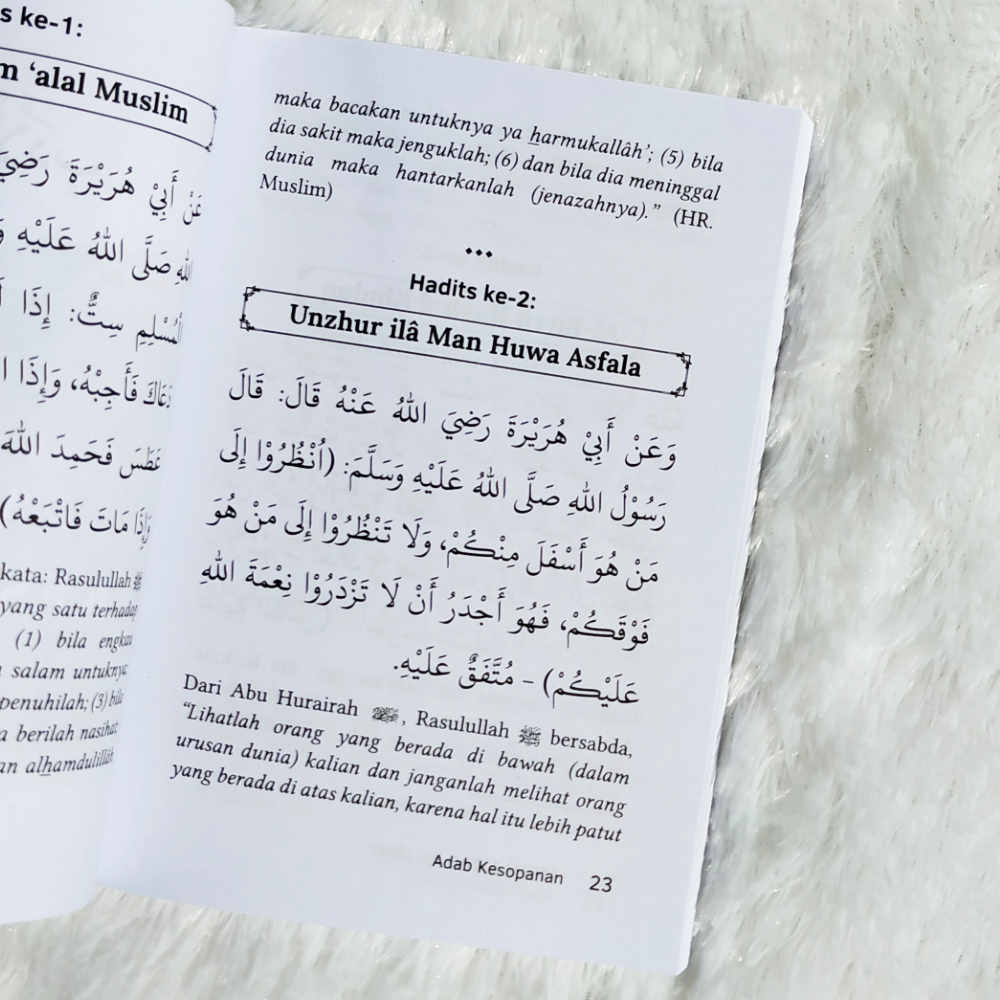 s ke-1:
m ‘alal Muslim
عَنْ أَبِيْ هُرَيْرَةَ رَضِيَ
اللهِ صَلَّى اللهُ عَلَيْهِ
الْمُسْلِمِ سِتٌّ: إِذَا
دَعَاكَ فَأَجِبْهُ، وَإِذَا
عَطَسَ فَحَمِدَ اللهَ
وَإِذَا مَاتَ فَاتْبَعْهُ)
kata: Rasulullah ﷺ
yang satu terhadap
(1) bila engkau
salam untuknya
penuhilah; (3) bila
a berilah nasihat
an alhamdulillâh
maka bacakan untuknya ya harmukallâh’; (5) bila
dia sakit maka jenguklah; (6) dan bila dia meninggal
dunia maka hantarkanlah (jenazahnya).” (HR.
Muslim)
Hadits ke-2:
Unzhur ilâ Man Huwa Asfala
وَعَنْ أَبِيْ هُرَيْرَةَ رَضِيَ اللهُ عَنْهُ قَالَ: قَالَ
رَسُوْلُ اللهِ صَلَّى اللهُ عَلَيْهِ وَسَلَّمَ: (اُنْظُرُوْا إِلَى
مَنْ هُوَ أَسْفَلَ مِنْكُمْ، وَلَا تَنْظُرُوْا إِلَى مَنْ هُوَ
فَوْقَكُمْ، فَهُوَ أَجْدَرُ أَنْ لَا تَزْدَرُوْا نِعْمَةَ اللهِ
عَلَيْكُمْ) - مُتَّفَقٌ عَلَيْهِ.
Dari Abu Hurairah ﵁, Rasulullah ﷺ bersabda,
“Lihatlah orang yang berada di bawah (dalam
urusan dunia) kalian dan janganlah melihat orang
yang berada di atas kalian, karena hal itu lebih patut
Adab Kesopanan 23